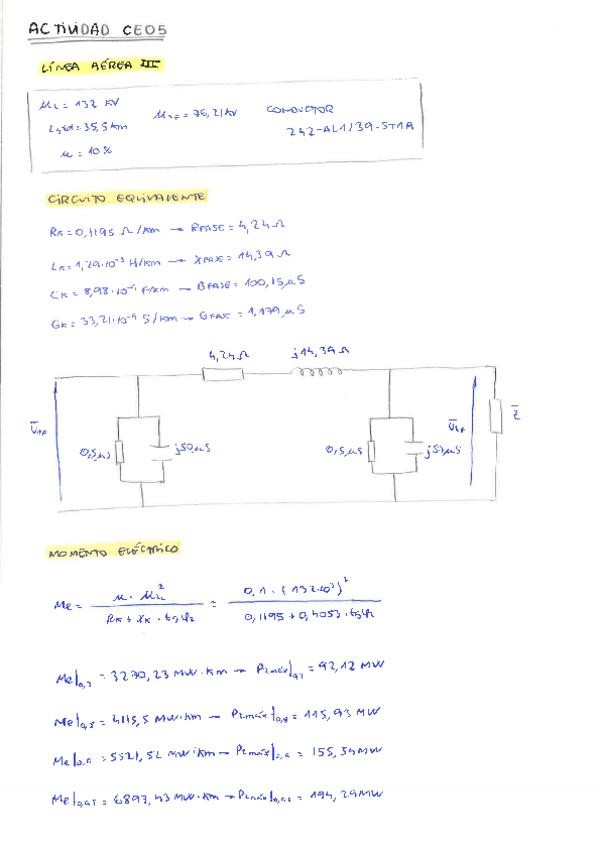 ACTIVIDAD CE05
LÍNEA AÉREA III
U2L = 132 KV U2F = 76,21 KV CONDUCTOR
L = 35,5 km 242-AL1/39-ST1A
u = 10%
CIRCUITO EQUIVALENTE
RK = 0,1195 Ω/km → RFASE = 4,24 Ω
LK = 1,29·10⁻³ H/km → XFASE = 14,39 Ω
CK = 8,98·10 F/km → BFASE = 100,15 µS
GK = 33,21·10 S/km → GFASE = 1,179 µS
4,24 Ω j14,39 Ω
0,5 µS j50 µS 0,5 µS j50 µS Z̄
MOMENTO ELÉCTRICO
Me = u · U2L² / RK + XK · tgφ2 = 0,1 · (132·10³)² / 0,1195 + 0,4053 · tgφ2
Me|0,7 = 3270,23 MW·Km → P2máx|0,7 = 92,12 MW
Me|0,8 = 4115,5 MW·Km → P2máx|0,8 = 115,93 MW
Me|0,9 = 5521,52 MW·Km → P2máx|0,9 = 155,54 MW
Me|0,95 = 6897,43 MW·Km → P2máx|0,95 = 194,29 MW